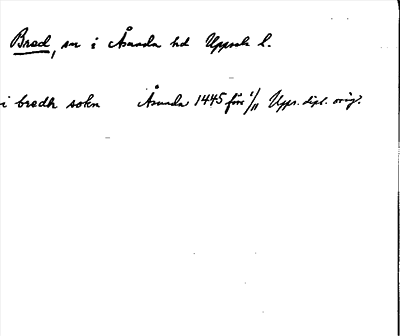 Bred, sn i Åsunda hd Upps. l.
i bredh sokn Åsunda 1445 före 1/11 Upps. dipl. orig.